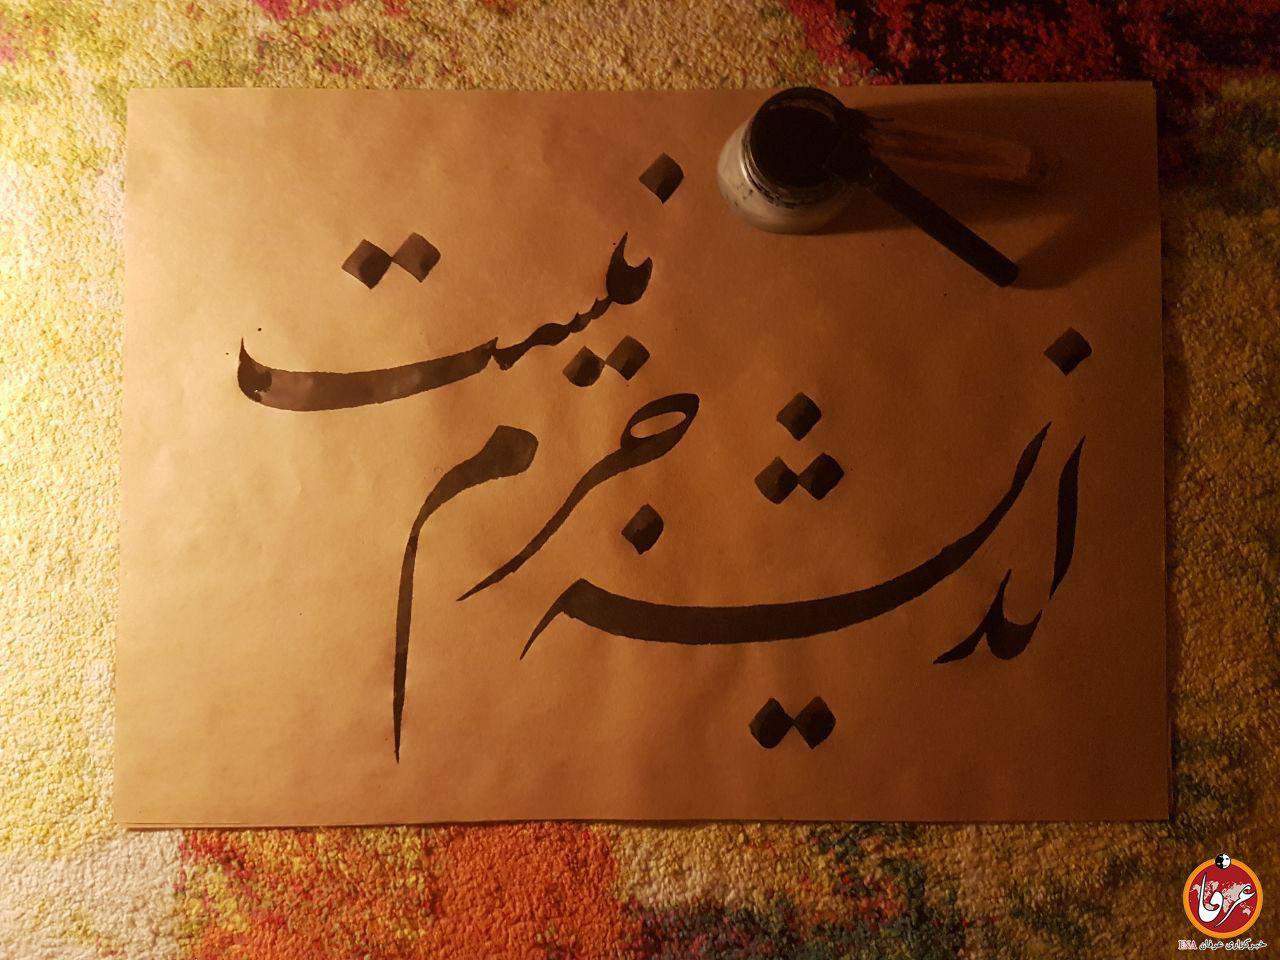 اندیشه جرم نیست
خبرگزاری عرفان ENA